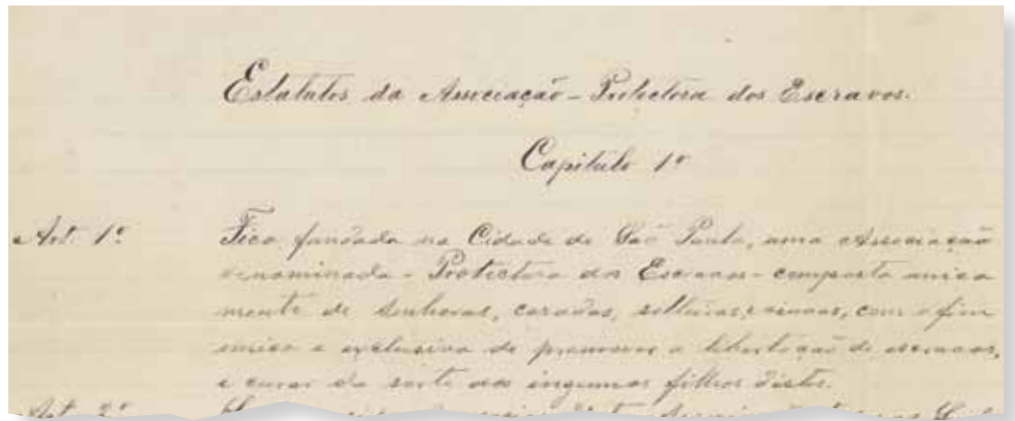 Estatutos da Associação - Protectora dos Escravos.
Capitulo 1º
Art. 1º Fica fundada na Cidade de São Paulo, uma Associação
denominada - Protectora dos Escravos - composta unica
mente de senhoras, casadas, solteiras, e viuvas, com o fim
unico e exclusivo de promover a libertação de escravos,
e curar da sorte dos ingenuos filhos distes.
Art. 2º